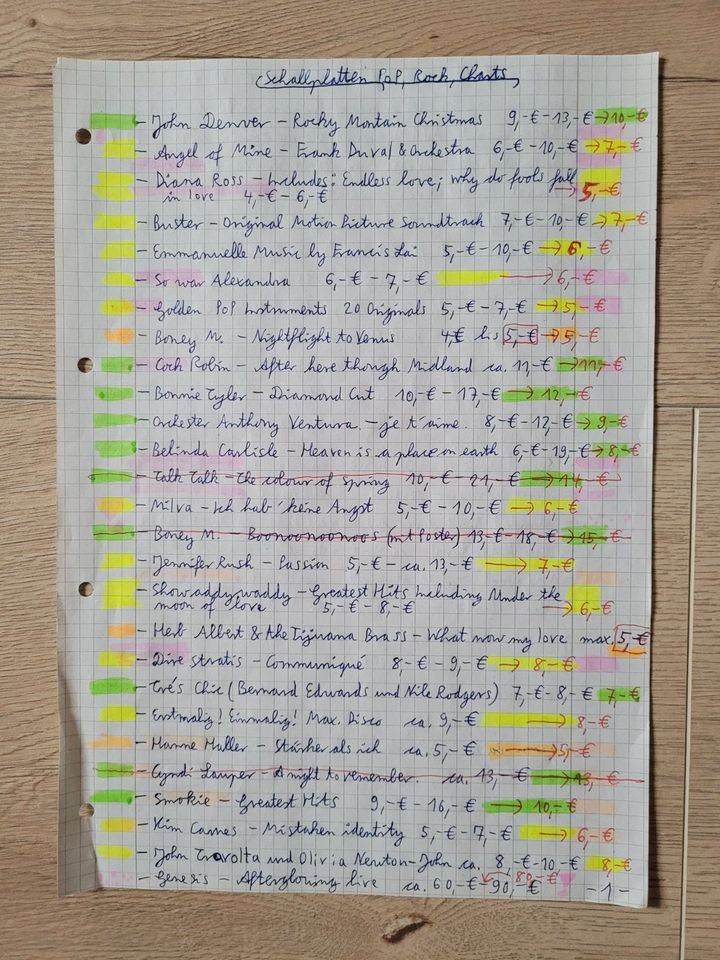 Schallplatten Pop, Rock, Charts
- John Denver - Rocky Montain Christmas 9,-€ - 13,-€ → 10,-€
- Angel of Mine - Frank Duval & Orchestra 6,-€ - 10,-€ → 7,-€
- Diana Ross - Includes: Endless love; why do fools fall
in love 4,-€ - 6,-€ → 5,-€
- Buster - Original Motion Picture Soundtrack 7,-€ - 10,-€ → 7,-€
- Emmanuelle Music by Francis Lai 5,-€ - 10,-€ → 6,-€
- So war Alexandra 6,-€ - 7,-€ → 6,-€
- Golden Pop Instruments 20 Originals 5,-€ - 7,-€ → 5,-€
- Boney M. - Nightflight to Venus 4,€ bis 5,-€ → 5,-€
- Cock Robin - After here though Midland ca. 11,-€ → 11,-€
- Bonnie Tyler - Diamond Cut 10,-€ - 17,-€ → 12,-€
- Orchester Anthony Ventura. - je t'aime. 8,-€ - 12,-€ → 9,-€
- Belinda Carlisle - Heaven is a place on earth 6,-€ - 19,-€ → 8,-€
- Talk Talk - the colour of spring 10,-€ - 21,-€ → 14,-€
- Milva - ich hab' keine Angst 5,-€ - 10,-€ → 6,-€
- Boney M. - Boonoonoonoos (mit Poster) 13,-€ - 18,-€ → 15,-€
- Jennifer Rush - Passion 5,-€ - ca. 13,-€ → 7,-€
- Showaddywaddy - Greatest Hits Including Under the
moon of love 5,-€ - 8,-€ → 6,-€
- Herb Albert & the Tijuana Brass - What now my love max. 5,-€
- Dire Stratis - Communiqué 8,-€ - 9,-€ → 8,-€
- Trés Chic (Bernard Edwards und Nile Rodgers) 7,-€ - 8,-€ 7,-€
- Erstmalig! Einmalig! Max. Disco ca. 9,-€ → 8,-€
- Hanne Haller - Stärker als ich ca. 5,-€ → 5,-€
- Cyndi Lauper - A night to remember. ca. 13,-€ → 13,-€
- Smokie - Greatest Hits 9,-€ - 16,-€ → 10,-€
- Kim Carnes - Mistaken identity 5,-€ - 7,-€ → 6,-€
- John Travolta und Olivia Newton-John ca. 8,-€ - 10,-€ 8,-€
- Genesis - Afterglowing live ca. 60,-€ - 90,-€ 80,-€ - 1 -